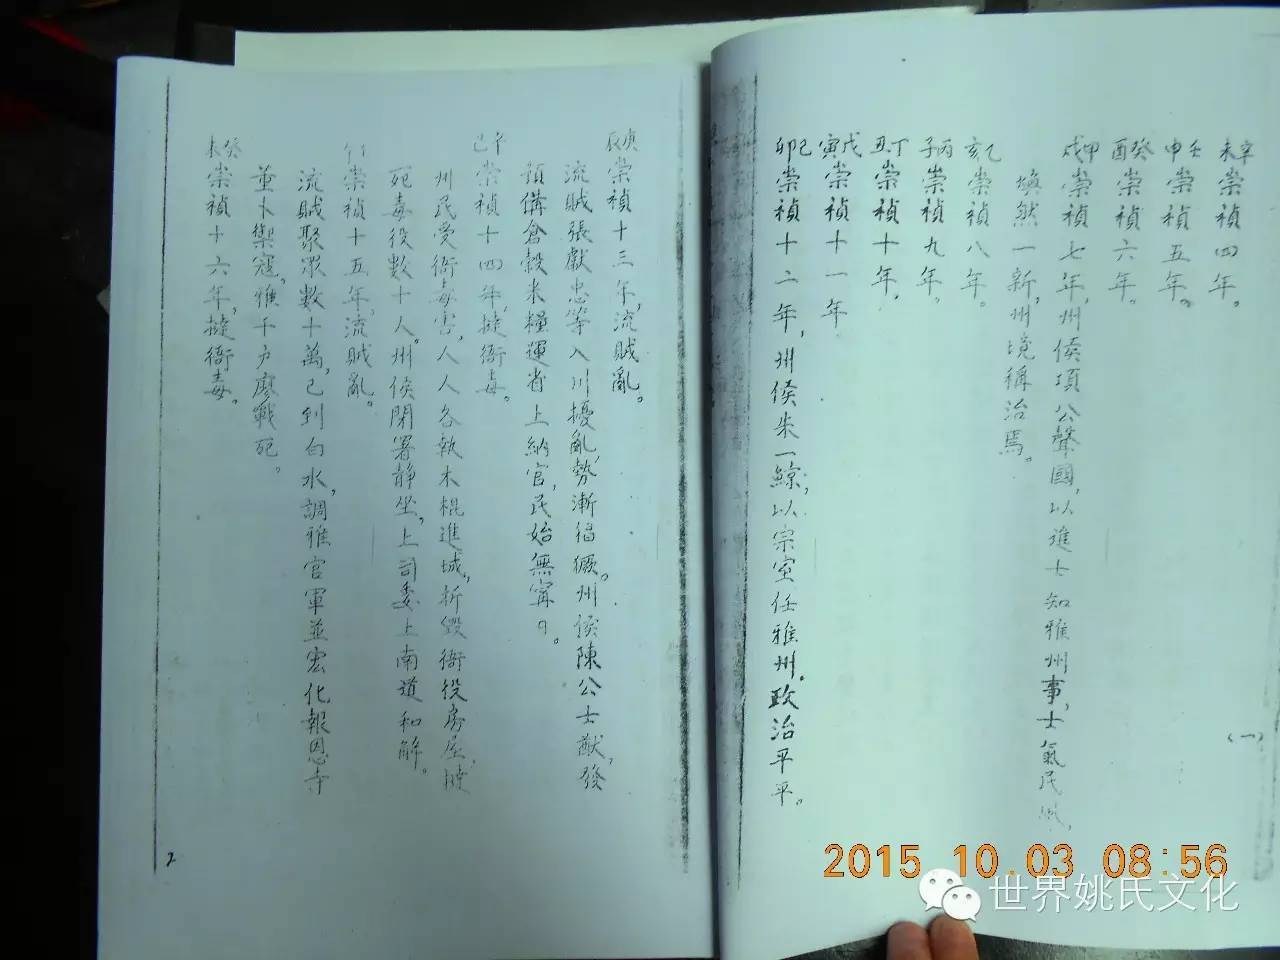 辛未崇禎四年。
壬申崇禎五年。
癸酉崇禎六年。
甲戌崇禎七年,州侯項公聲國,以進士知雅州事,士氣民風,
煥然一新,州境稱治焉。
乙亥崇禎八年。
丙子崇禎九年。
丁丑崇禎十年,
戊寅崇禎十一年
己卯崇禎十二年,州侯朱一鯨,以宗室任雅州.政治平平。
(一)
庚辰崇禎十三年,流賊亂。
流賊張獻忠等入川擾亂,勢漸猖獗。州侯陳公士猷,發
預備倉穀米糧運省上納官,民始無寧日。
崇禎十四年,撻衙毒。
州民受衙毒害,人人各執木棍進城,折毀衙役房屋,撻
死毒役數十人。州侯閉署靜坐,上司委上南道和解。
崇禎十五年,流賊亂。
流賊聚眾數十萬,已到白水,調雅官軍並宏化報恩寺
董卜禦寇。雅千戶廖戰死。
癸未崇禎十六年,撻衙毒。
2
2015 10.03 08:56
世界姚氏文化